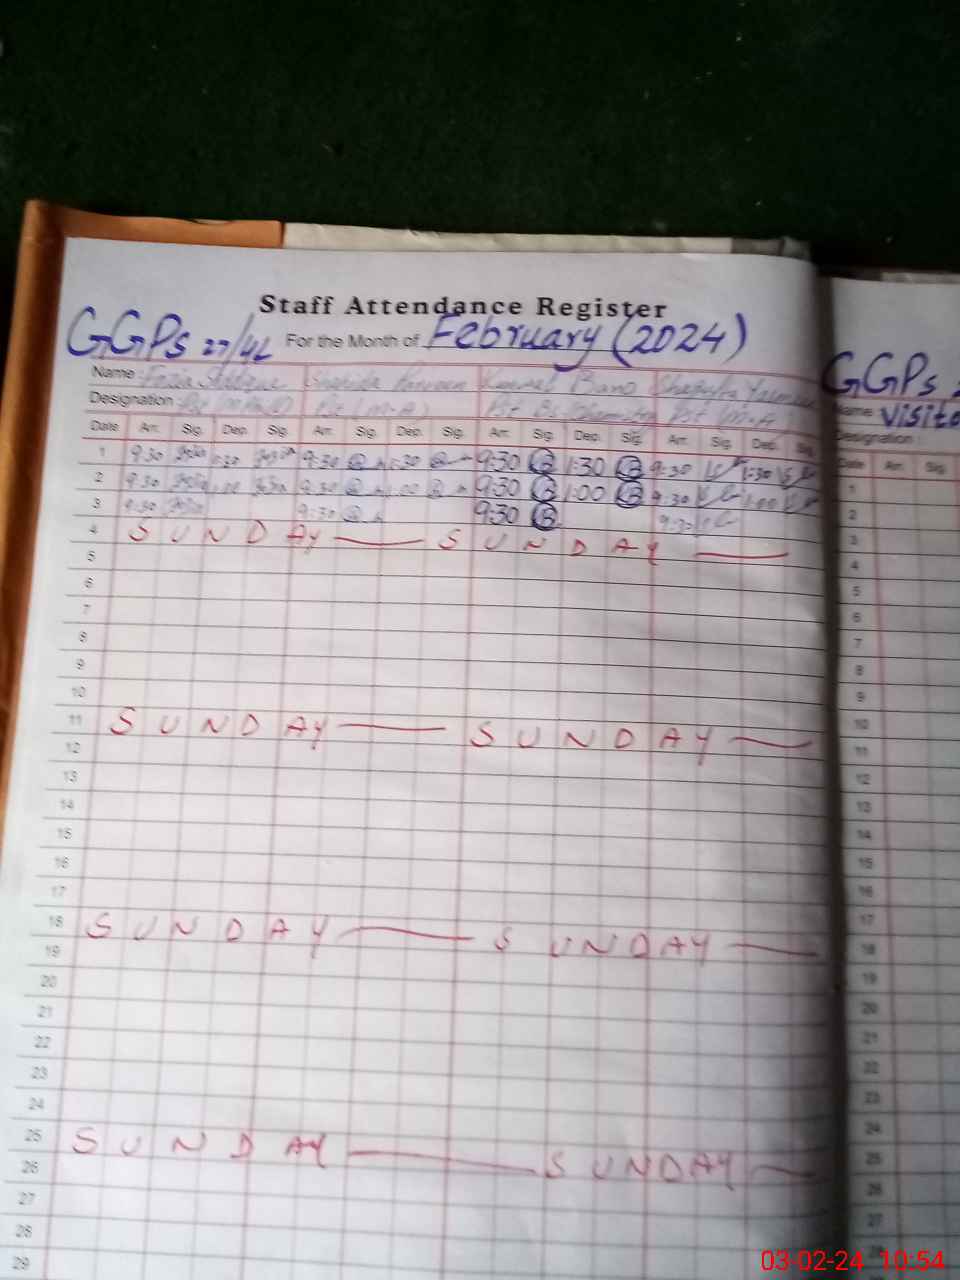 Staff Attendance Register
GGPs 27/4L For the Month of February (2024)
Name: Shahida Parveen Kunwal Bano
Designation: Pst (M.A) Pst (M.A)
Date Arr. Sig. Dep. Sig. Arr. Sig. Dep. Sig. Arr. Sig. Dep. Sig. Arr. Sig. Dep. Sig.
1 9:30 1:30 9:30 1:30 9:30 B 1:30 B 9:30 1:30
2 9:30 1:00 9:30 1:00 9:30 B 1:00 B 9:30 1:00
3 9:30 9:30 9:30 B 9:30
4 SUNDAY — SUNDAY —
5
6
7
8
9
10
11 SUNDAY — SUNDAY —
12
13
14
15
16
17
18 SUNDAY — SUNDAY —
19
20
21
22
23
24
25 SUNDAY — SUNDAY —
26
27
28
29
GGPs
Name: Visito
Designation:
Date Arr. Sig.
1
2
3
4
5
6
7
8
9
10
11
12
13
14
15
16
17
18
19
20
21
22
23
24
25
26
27
03-02-24 10:54